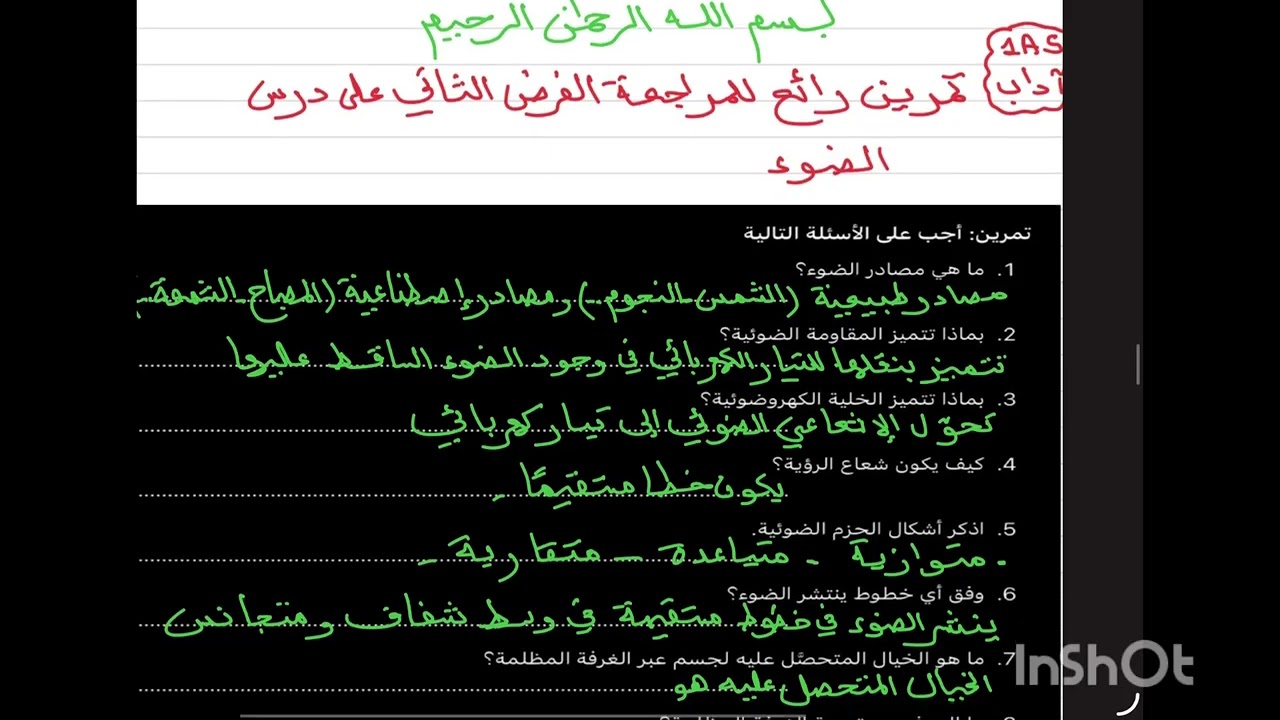 بسم الله الرحمان الرحيم
1AS
آداب
تمرين رائع للمراجعة الفرض الثاني على درس
الضوء
تمرين: أجب على الأسئلة التالية
1. ما هي مصادر الضوء؟
مصادر طبيعية (الشمس، النجوم..) ومصادر إصطناعية (المصباح الشمعة
2. بماذا تتميز المقاومة الضوئية؟
تتميز بنقلها للتيار الكهربائي في وجود الضوء الساقط عليها
3. بماذا تتميز الخلية الكهروضوئية؟
تحوّل الإ الضوئي إلى تيار كهربائي
4. كيف يكون شعاع الرؤية؟
يكون خطا مستقيمًا .
5. اذكر أشكال الحزم الضوئية.
. متوازية - متباعدة - متقاربة .
6. وفق أي خطوط ينتشر الضوء؟
ينتشر الضوء في خطوط مستقيمة في وسط شفاف ومتجانس
7. ما هو الخيال المتحصَّل عليه لجسم عبر الغرفة المظلمة؟
الخيال المتحصل عليه هو
InShOt